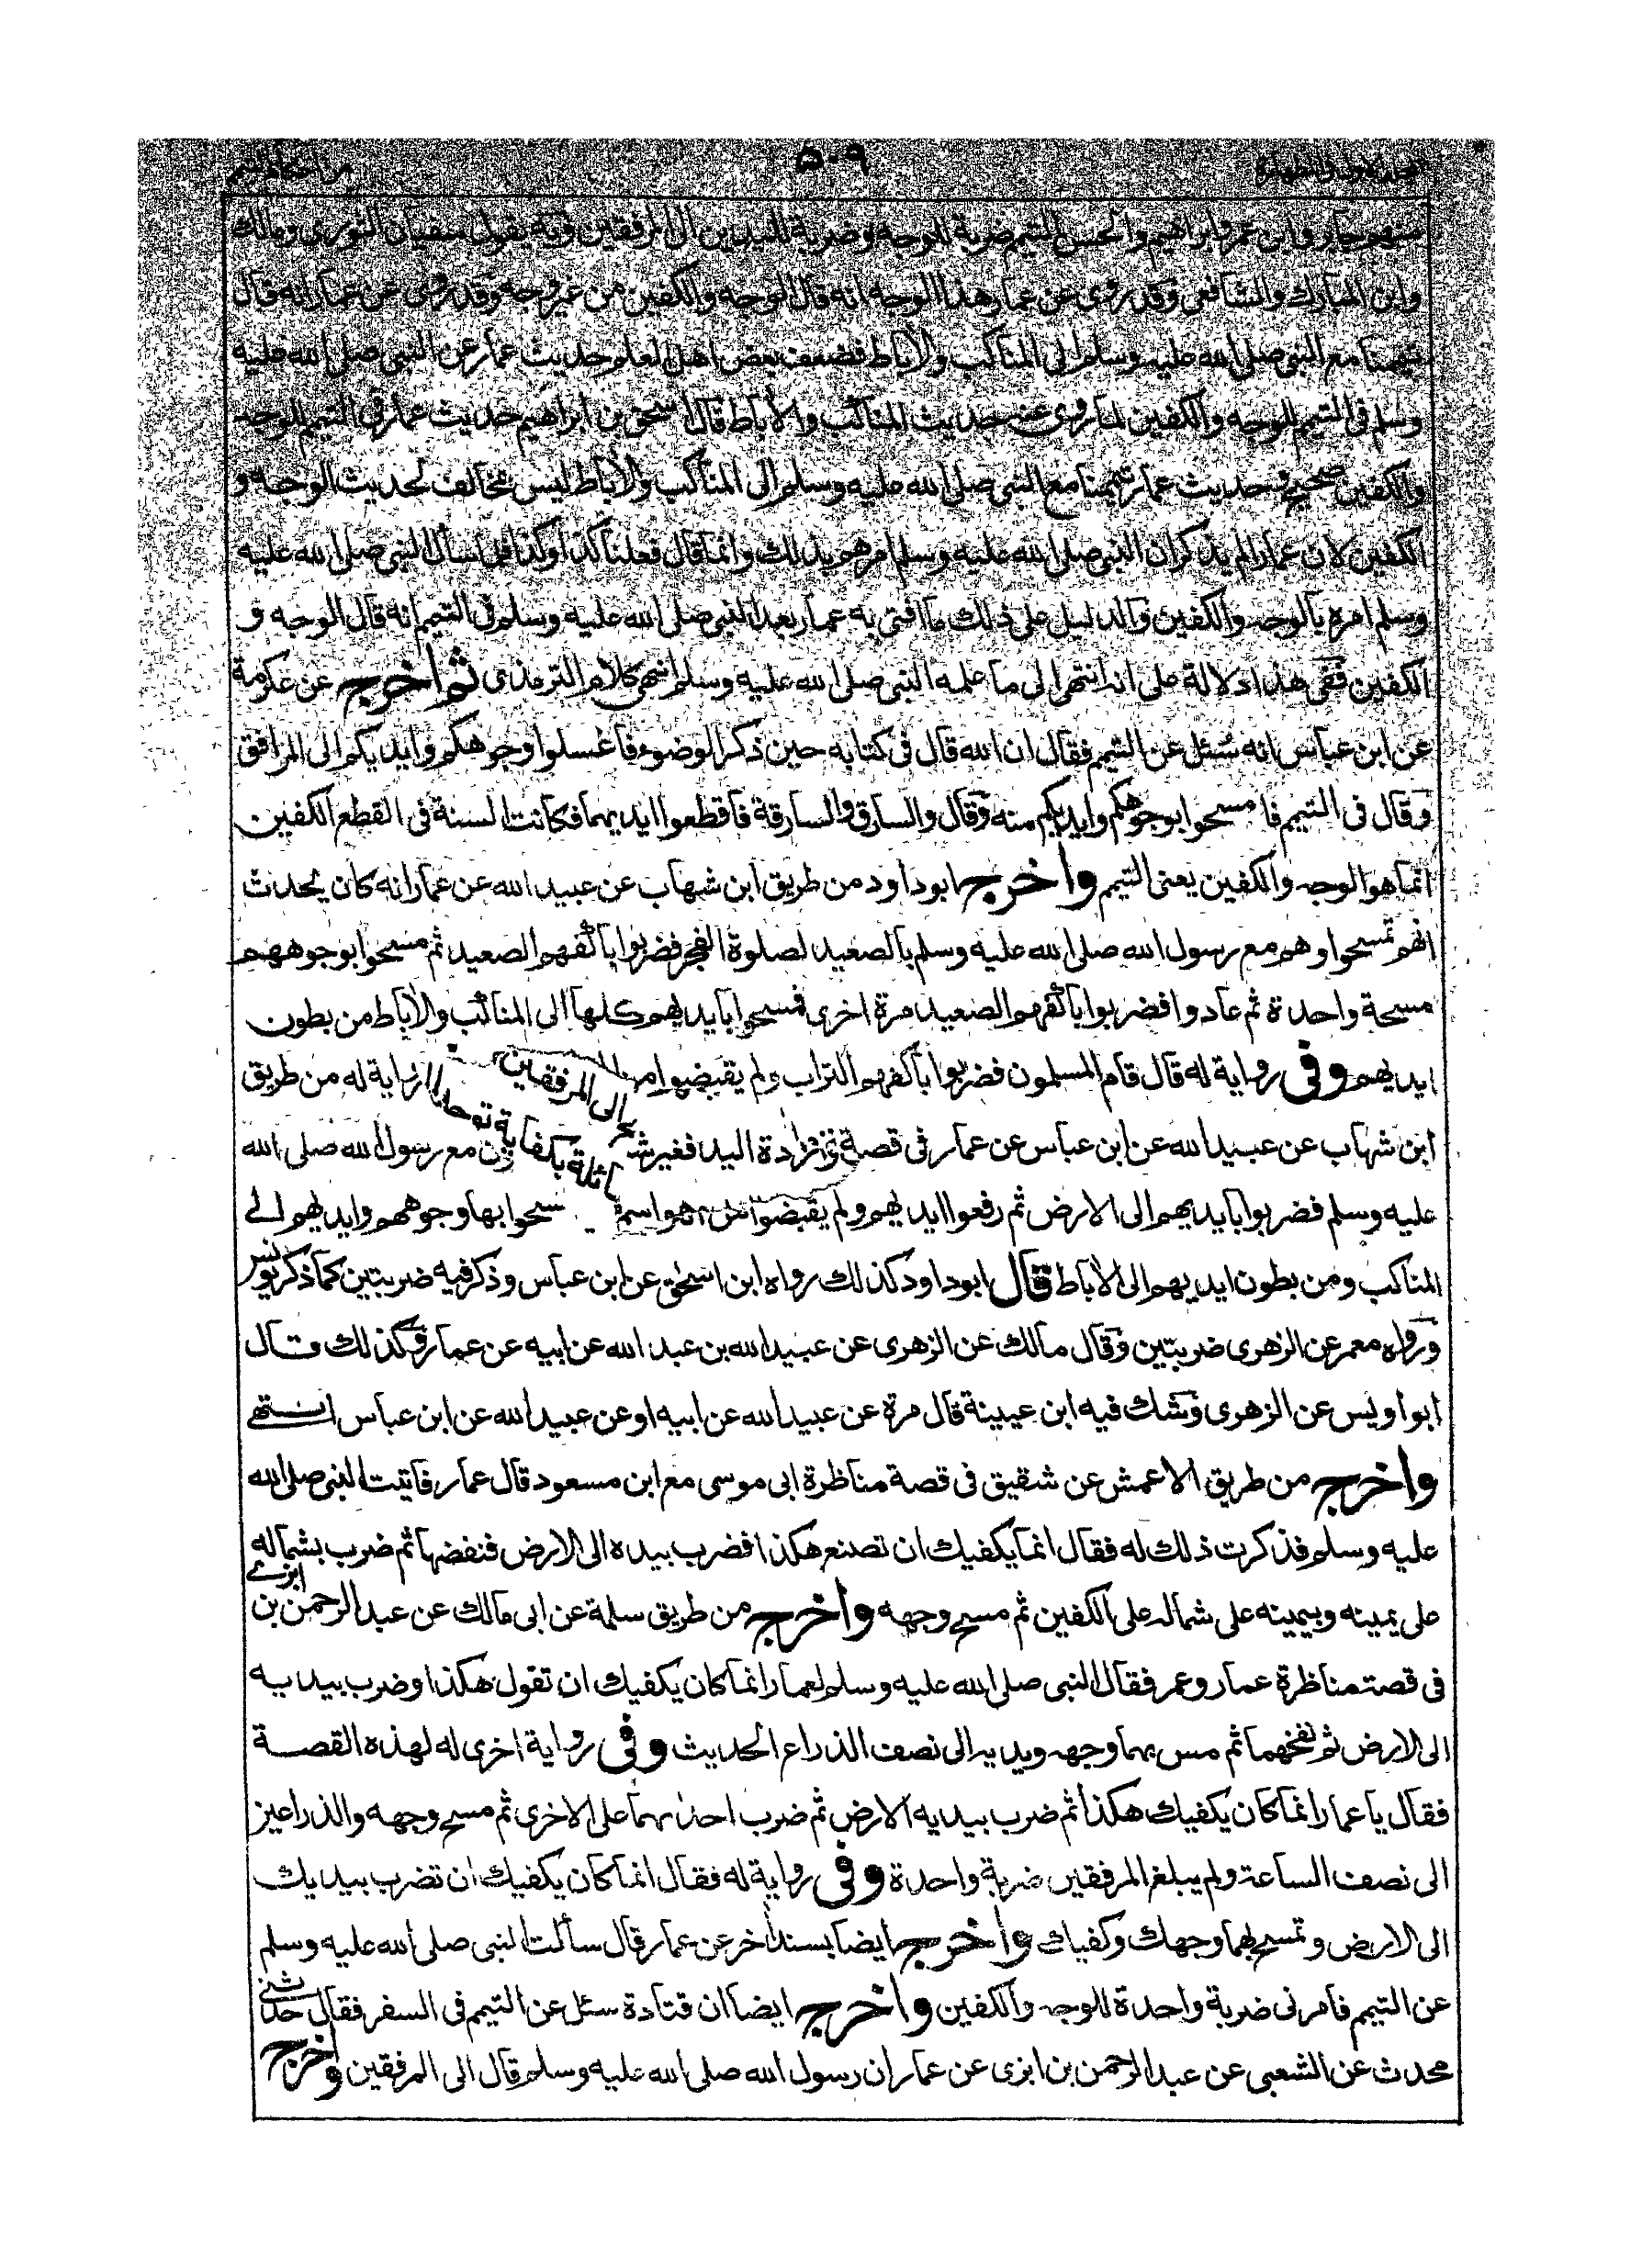 ٥٠٩
منهم جابر وابن عمر وابراهيم والحسن التيمم ضربة للوجه وضربة لليدين الى المرفقين وبه يقول سفيان الثوري ومالك
وابن المبارك والشافعي وقد روى عن عمار هذا الوجه انه قال الوجه والكفين من غير وجه وقد روى عن عمار انه قال
تيممنا مع النبي صلى الله عليه وسلم الى المناكب والاباط فضعف بعض اهل العلم حديث عمار عن النبي صلى الله عليه
وسلم في التيمم للوجه والكفين لما روى عنه حديث المناكب والاباط قال اسحق بن ابراهيم حديث عمار في التيمم للوجه
والكفين صحيح وحديث عمار تيممنا مع النبي صلى الله عليه وسلم الى المناكب والاباط ليس مخالف لحديث الوجه و
الكفين لان عمارا لم يذكر ان النبي صلى الله عليه وسلم امرهم بذلك وانما قال فعلنا كذا وكذا فلما سأل النبي صلى الله عليه
وسلم امره بالوجه والكفين والدليل على ذلك ما افتى به عمار بعد النبي صلى الله عليه وسلم في التيمم انه قال الوجه و
الكفين ففي هذا دلالة على انه انتهى الى ما علمه النبي صلى الله عليه وسلم انتهى كلام الترمذي ثم اخرج عن عكرمة
عن ابن عباس انه سئل عن التيمم فقال ان الله قال في كتابه حين ذكر الوضوء فاغسلوا وجوهكم وايديكم الى المرافق
وقال في التيمم فامسحوا بوجوهكم وايديكم منه وقال والسارق والسارقة فاقطعوا ايديهما فكانت السنة في القطع الكفين
انما هو الوجه والكفين يعنى التيمم واخرج ابو داود من طريق ابن شهاب عن عبيد الله عن عمار انه كان يحدث
انهم تمسحوا وهم مع رسول الله صلى الله عليه وسلم بالصعيد لصلوة الفجر فضربوا باكفهم الصعيد ثم مسحوا بوجوههم
مسحة واحدة ثم عادوا فضربوا باكفهم الصعيد مرة اخرى فمسحوا بايديهم كلها الى المناكب والاباط من بطون
ايديهم وفى رواية له قال قام المسلمون فضربوا باكفهم التراب ولم يقبضوا الى المرفقين رواية له من طريق
ابن شهاب عن عبيد الله عن ابن عباس عن عمار في قصة مع رسول الله صلى الله
عليه وسلم فضربوا بايديهم الى الارض ثم رفعوا ايديهم ولم يقبضوا بها وجوههم وايديهم الى
المناكب ومن بطون ايديهم الى الاباط قال ابو داود كذلك رواه ابن اسحق عن ابن عباس وذكر فيه ضربتين كما ذكر يونس
ورواه معمر عن الزهرى ضربتين وقال مالك عن الزهرى عن عبيد الله بن عبد الله عن ابيه عن عمار وكذلك قال
ابو اويس عن الزهرى وشك فيه ابن عيينة قال مرة عن عبيد الله عن ابيه او عن عبيد الله عن ابن عباس انتهى
واخرج من طريق الاعمش عن شقيق في قصة مناظرة ابى موسى مع ابن مسعود قال عمار فاتيت النبي صلى الله
عليه وسلم فذكرت ذلك له فقال انما يكفيك ان تصنع هكذا فضرب بيده الى الارض فنفضها ثم ضرب بشماله
على يمينه وبيمينه على شماله على الكفين ثم مسح وجهه واخرج من طريق سلمة عن ابى مالك عن عبد الرحمن بن ابزى
في قصة مناظرة عمار وعمر فقال النبي صلى الله عليه وسلم لعمار انما كان يكفيك ان تقول هكذا وضرب بيديه
الى الارض ثم نفخهما ثم مس بهما وجهه ويديه الى نصف الذراع الحديث وفى رواية اخرى له لهذه القصة
فقال يا عمار انما كان يكفيك هكذا ثم ضرب بيديه الارض ثم ضرب احدٰهما على الاخرى ثم مسح وجهه والذراعين
الى نصف الساعد ولم يبلغ المرفقين ضربة واحدة وفى رواية له فقال انما كان يكفيك ان تضرب بيديك
الى الارض وتمسح بهما وجهك وكفيك واخرج ايضا بسند اخر عن عمار قال سألت النبي صلى الله عليه وسلم
عن التيمم فامرنى ضربة واحدة للوجه والكفين واخرج ايضا ان قتادة سئل عن التيمم في السفر فقال حدثنى
محدث عن الشعبى عن عبد الرحمن بن ابزى عن عمار ان رسول الله صلى الله عليه وسلم قال الى المرفقين واخرج